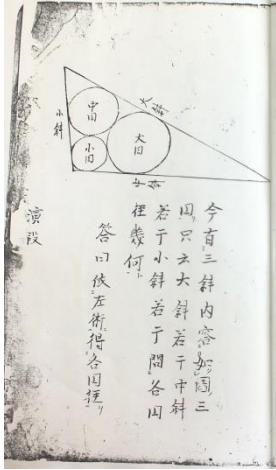 大斜
中円
小斜
大円
小円
中斜
今有三斜内容如圖三
円只云大斜若干中斜
若干小斜若干問各円
径幾何
答曰依左術得各円径
演段